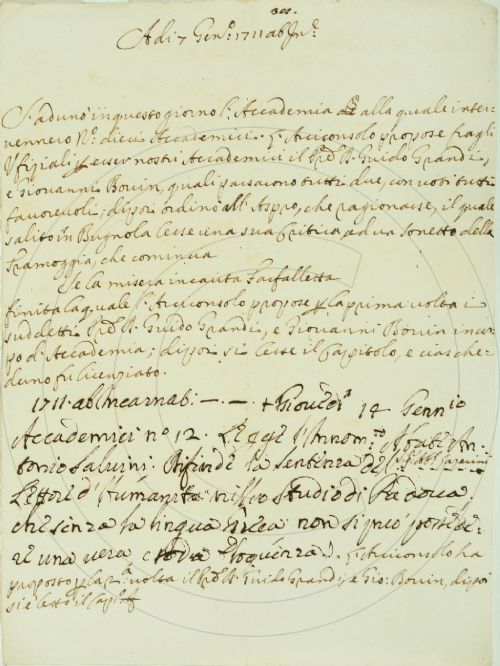 Adi 7 Gen.º 1711 ab In.e
S'adunò in questo giorno l'Accademia alla quale inter
vennero N.º dieci Accademici. L'Arciconsolo propose fra gli
Ufiziali p esser nostri Accademici il Pre D. Guido Grandi,
e Giovanni Bouin, quali passarono tutti due, con voti tutti
favorevoli; di poi ordinò all'Aspro, che ragionasse, il quale
salito in Bugnola lesse una sua Critica ad un Sonetto della
Tramoggia, che comincia
Se la misera incauta Farfalletta
finita la quale l'Arciconsolo propose p la prima volta i
suddetti Pre D. Guido Grandi, e Giovanni Bouin in cor
po d'Accademia; di poi si lesse il Capitolo, e ciasche
duno fu licenziato.
1711 ab Incarnat: Giovedì 14 Gennio
Accademici nº 12. Lesse l'Annom.to Abate An
tonio Salvini. Rifiutò la sentenza del
Lettore d'Umanità nello Studio di Padova,
che senza la lingua Greca non si può possede
re una vera e soda Eloquenza. L'Arciconsolo ha
proposto p la 2.a volta il Pre D. Guido Grandi, e Gio: Bouin, dipoi
si è letto il Cap.º